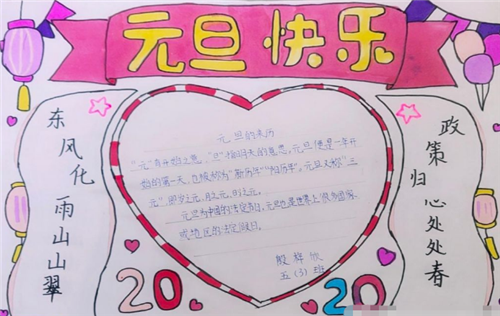 元旦快乐
东风化雨山山翠
元旦的来历
"元"有开始之意,"旦"指明天的意思。元旦便是一年开
始的第一天,也被称为"新历年""阳历年"。元旦又称"三
元",即岁之元、月之元、日之元。
元旦为中国的法定节日。元旦也是世界上很多国家
或地区的法定假日。
殷梓欣
五(3)班
政策归心处处春
2020